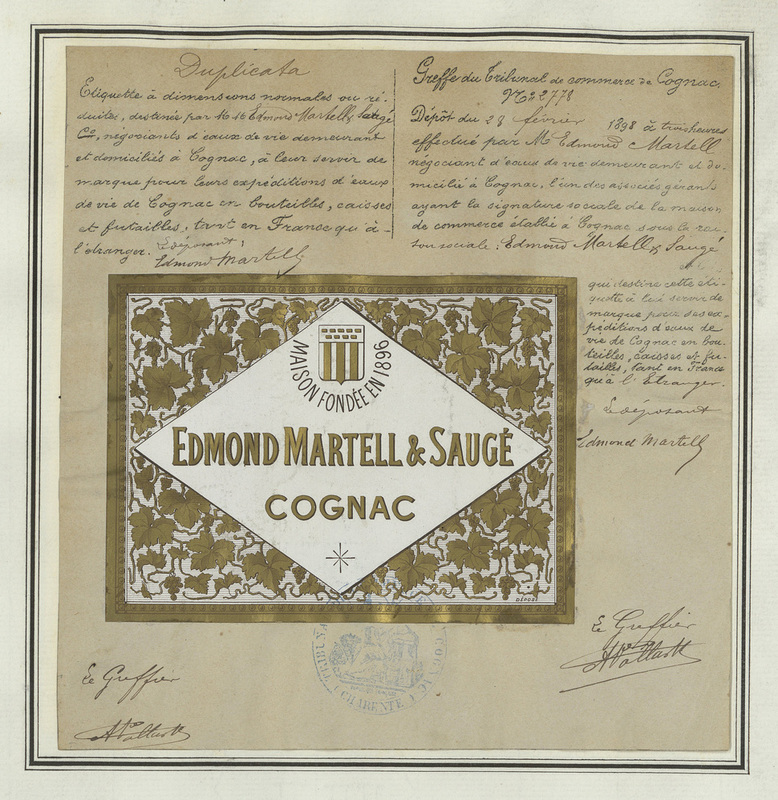 Duplicata
Etiquette à dimensions normales ou ré-
duites, destinée par M. M. Edmond Martell & Saugé
Co, négociants d'eaux de vie demeurant
et domiciliés à Cognac, à leur servir de
marque pour leurs expéditions d'eaux
de vie de Cognac en bouteilles, caisses
et futailles, tant en France qu'à
l'étranger. Le déposant,
Edmond Martell
Greffe du Tribunal de commerce de Cognac.
No 22778
Dépôt du 28 février 1898 à trois heures
effectué par Mr Edmond Martell
négociant d'eaux de vie demeurant et do-
micilié à Cognac, l'un des associés gérants
ayant la signature sociale de la maison
de commerce établie à Cognac sous la rai-
son sociale : Edmond Martell & Saugé
qui destine cette éti-
quette à lui servir de
marque pour ses ex-
péditions d'eaux de
vie de Cognac en bou-
teilles, caisses et fu-
tailles, tant en France
qu'à l'Etranger.
Le déposant
Edmond Martell
MAISON FONDÉE EN 1896
EDMOND MARTELL & SAUGÉ
COGNAC
Le Greffier
Le Greffier
CHARENTE